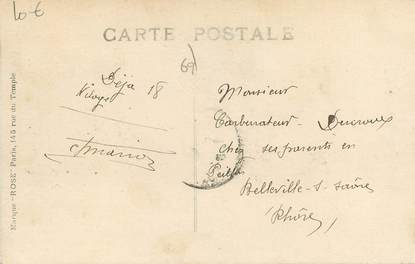 10 €
CARTE POSTALE
69
Déjà 18
Monsieur
Carburateur Ducroux
chez ses parents en
Belleville-s-Saône
(Rhône)
Marque "ROSE" Paris, 145 rue du Temple